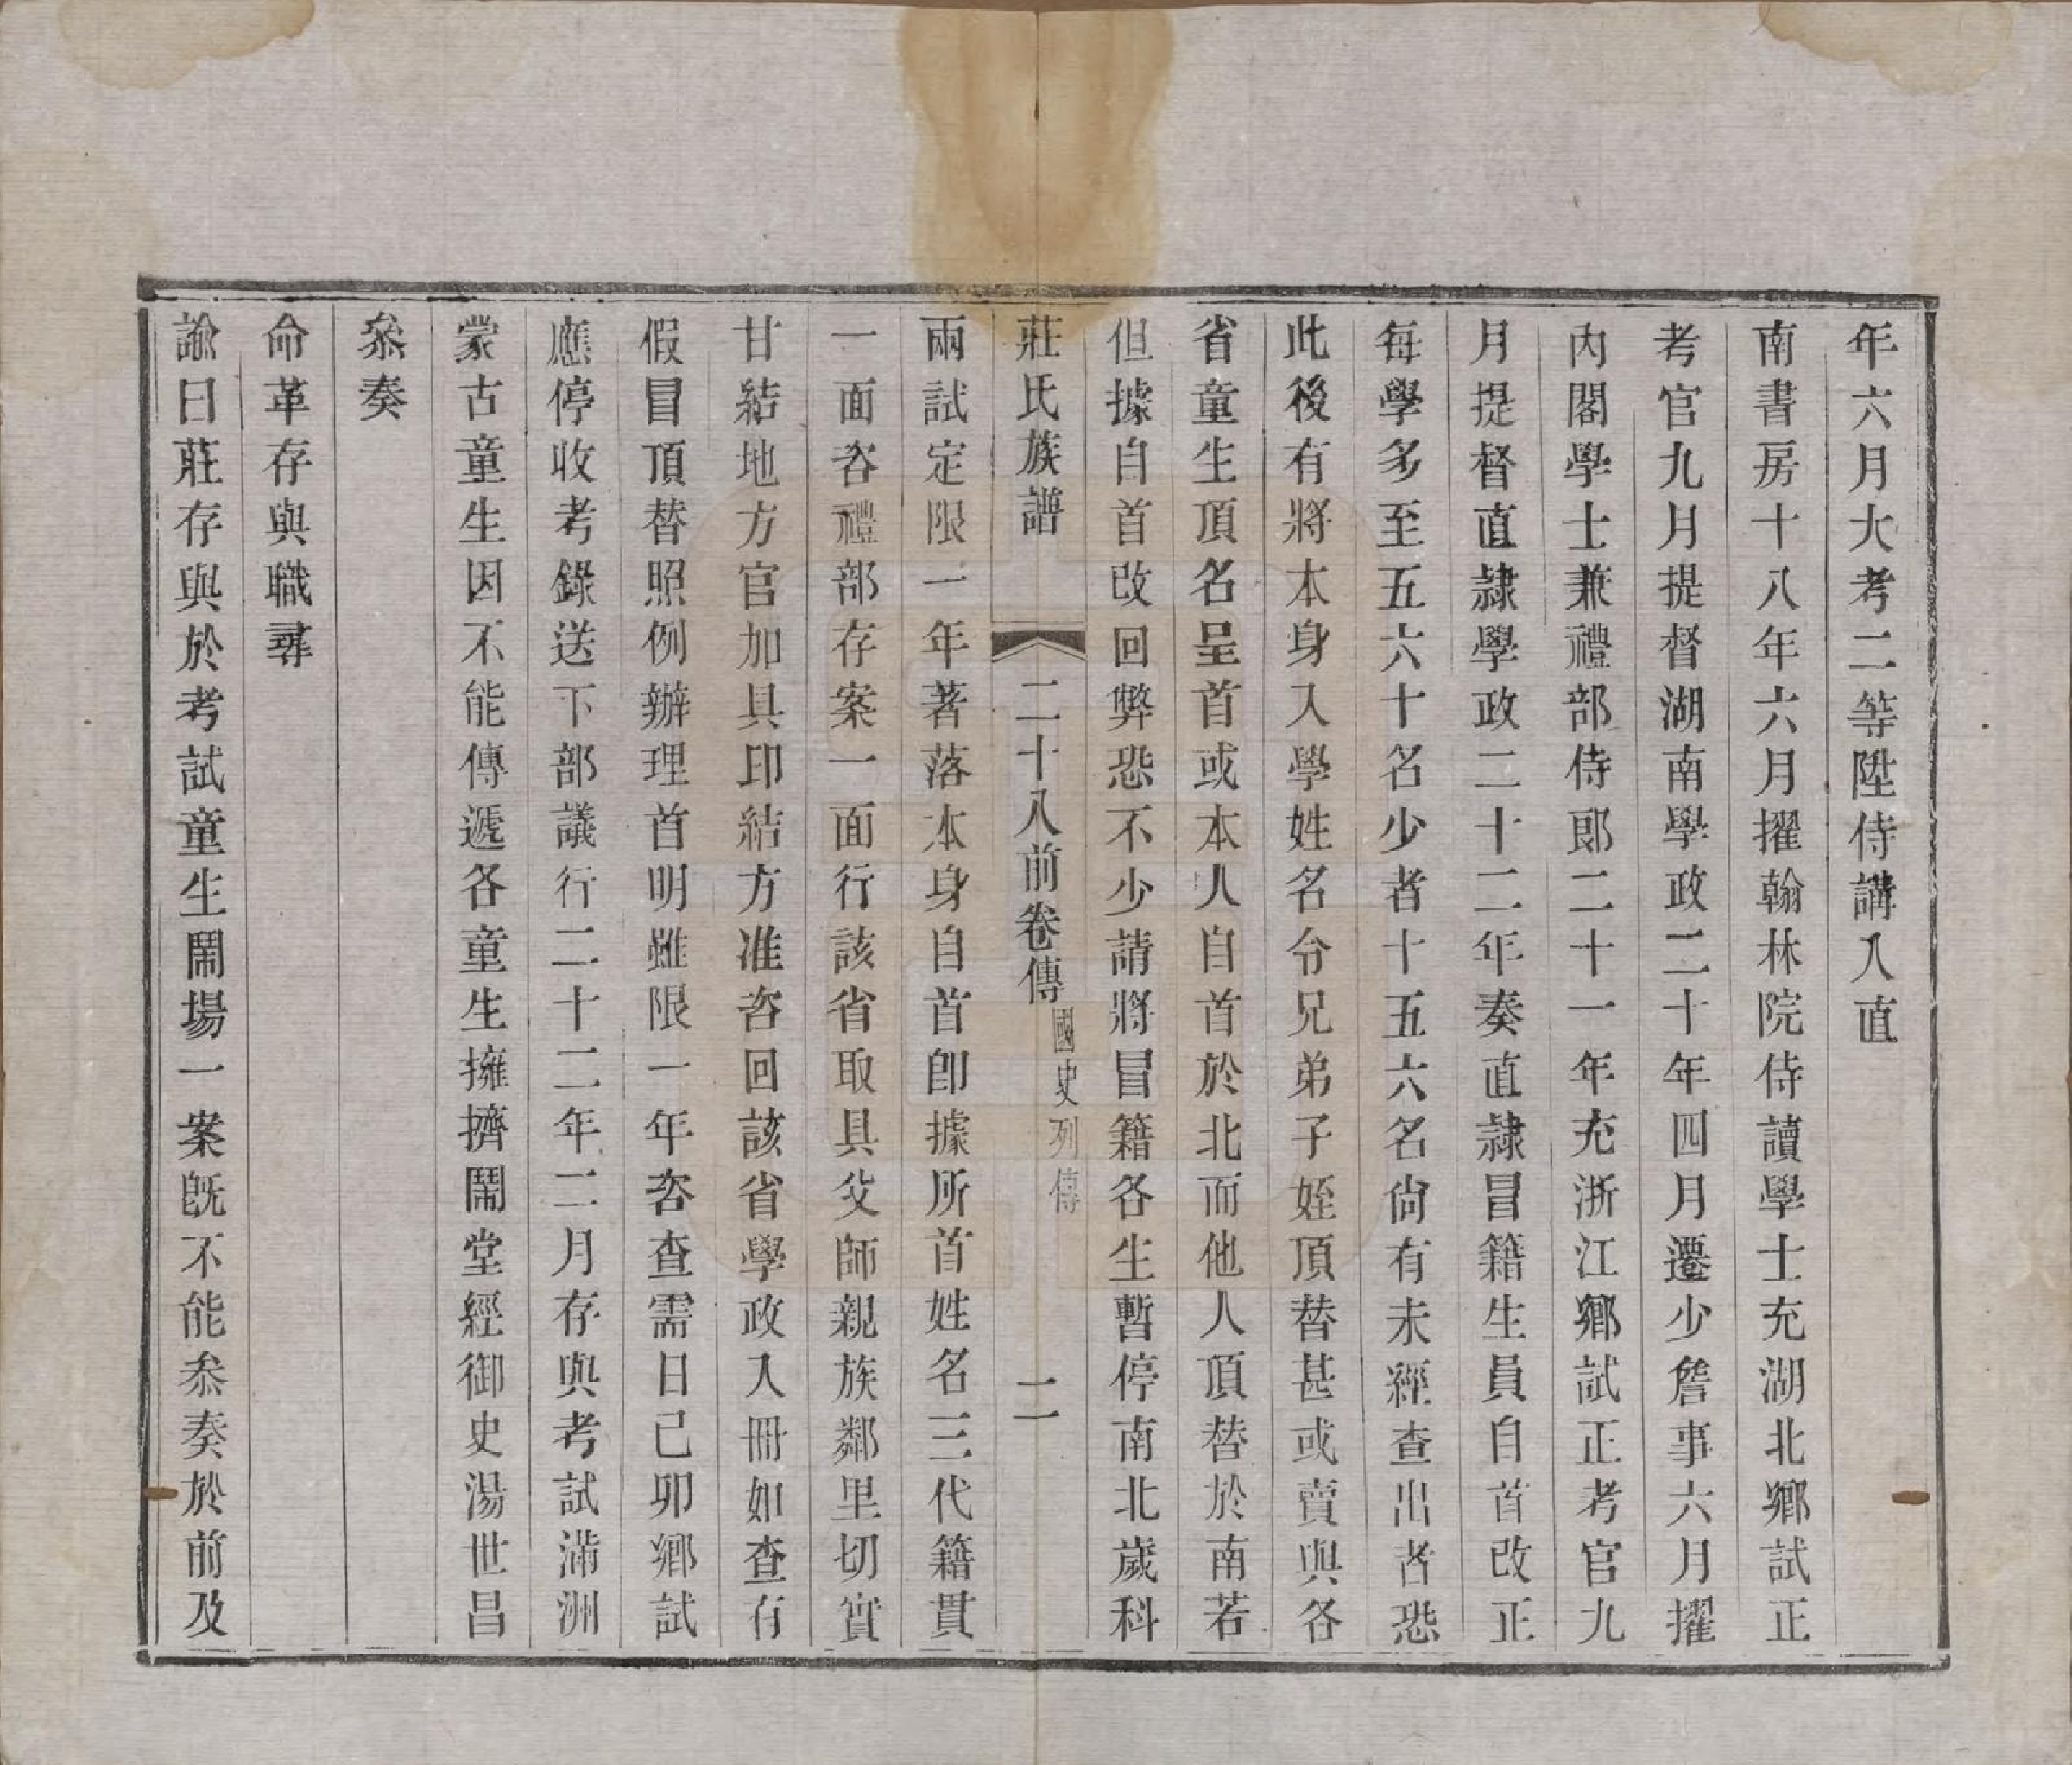 年六月大考二等陞侍講入直
南書房十八年六月擢翰林院侍讀學士充湖北鄉試正
考官九月提督湖南學政二十年四月遷少詹事六月擢
內閣學士兼禮部侍郎二十一年充浙江鄉試正考官九
月提督直隷學政二十二年奏直隷冒籍生員自首改正
每學多至五六十名少者十五六名尙有未經查出者恐
此後有將本身入學姓名分兄弟子姪頂替甚或賣與各
省童生頂名呈首或本人自首於北而他人頂替於南若
但據自首改回弊恐不少請將冒籍各生暫停南北歲科
莊氏族譜 二十八前卷傳 國史列傳 二
兩試定限一年著落本身自首卽據所首姓名三代籍貫
一面咨禮部存案一面行該省取具父師親族鄰里切實
甘結地方官加具印結方准咨回該省學政入冊如查有
假冒頂替照例辦理首明雖限一年咨查需日己卯鄉試
應停收考錄送下部議行二十二年二月存與考試滿洲
蒙古童生因不能傳遞各童生擁擠鬧堂經御史湯世昌
叅奏
命革存與職尋
諭曰莊存與於考試童生鬧場一案旣不能叅奏於前及